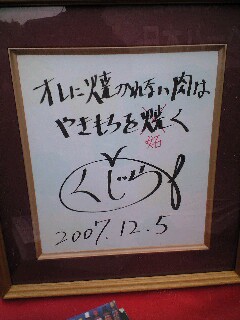 オレに焼かれない肉は
やきもちを焼く
妬
くじら
2007.12.5